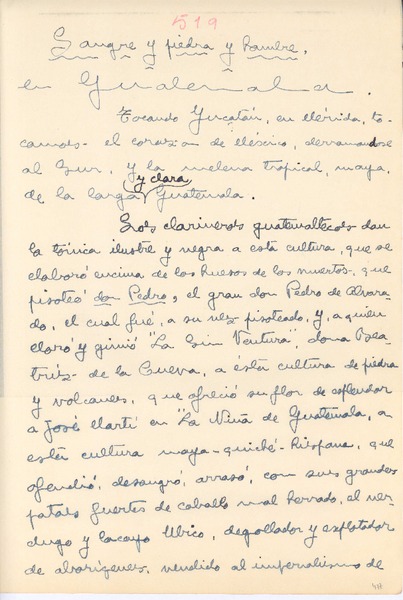 519
Sangre y piedra y hambre,
en Guatemala.
Tocando Yucatán, en Mérida, to-
camos el corazón de México, derramandose
al Sur, y la melena tropical, maya,
y clara
de la larga Guatemala.
Los clarineros guatemaltecos dan
la tónica ilustre y negra a esta cultura, que se
elaboró encima de los huesos de los muertos que
pisoteó don Pedro, el gran don Pedro de Alvara-
do, el cual fué, a su vez pisoteado, y, a quien
lloró y gimió "La Sin Ventura", doña Bea-
triz de la Cueva, a ésta cultura de piedra
y volcanes, que ofreció su flor de esplendor
a José Martí en "La Niña de Guatemala, a
esta cultura maya-quiché-hispana, que
ofendió, desangró, arrasó, con sus grandes
patas fuertes de caballo mal herrado, el ver-
dugo y lacayo Ubico, degollador y explotador
de aborígenes, vendido al imperialismo de